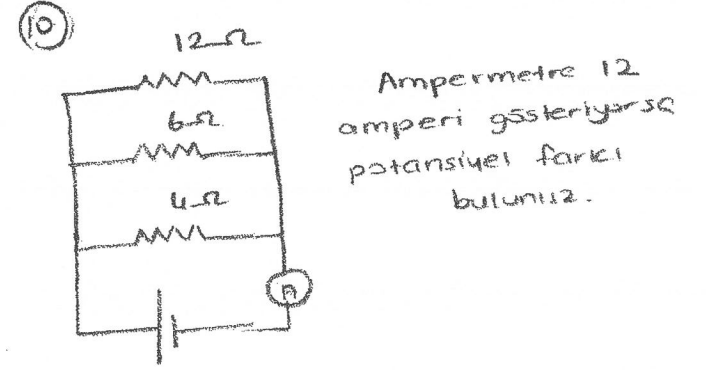 10
12Ω
6Ω
4Ω
A
Ampermetre 12
amperi gösteriyorsa
potansiyel farkı
bulunuz.